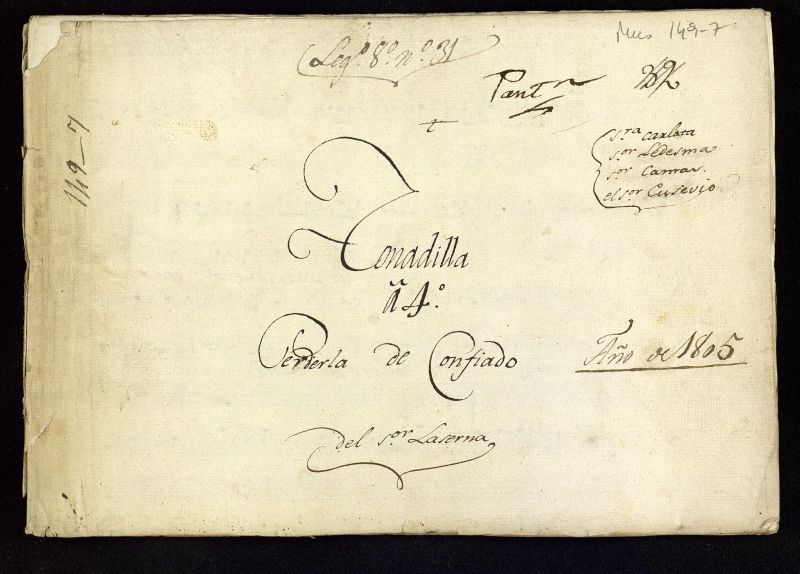 Mus 149-7
Leg.º 8.º n.º 31
149-7
s.ra Carlota
s.or Ledesma
s.or Camas.
el s.or Cusevio
Tonadilla
â 4.º
Perderla de Confiado
Año de 1805
del s.or Laserna